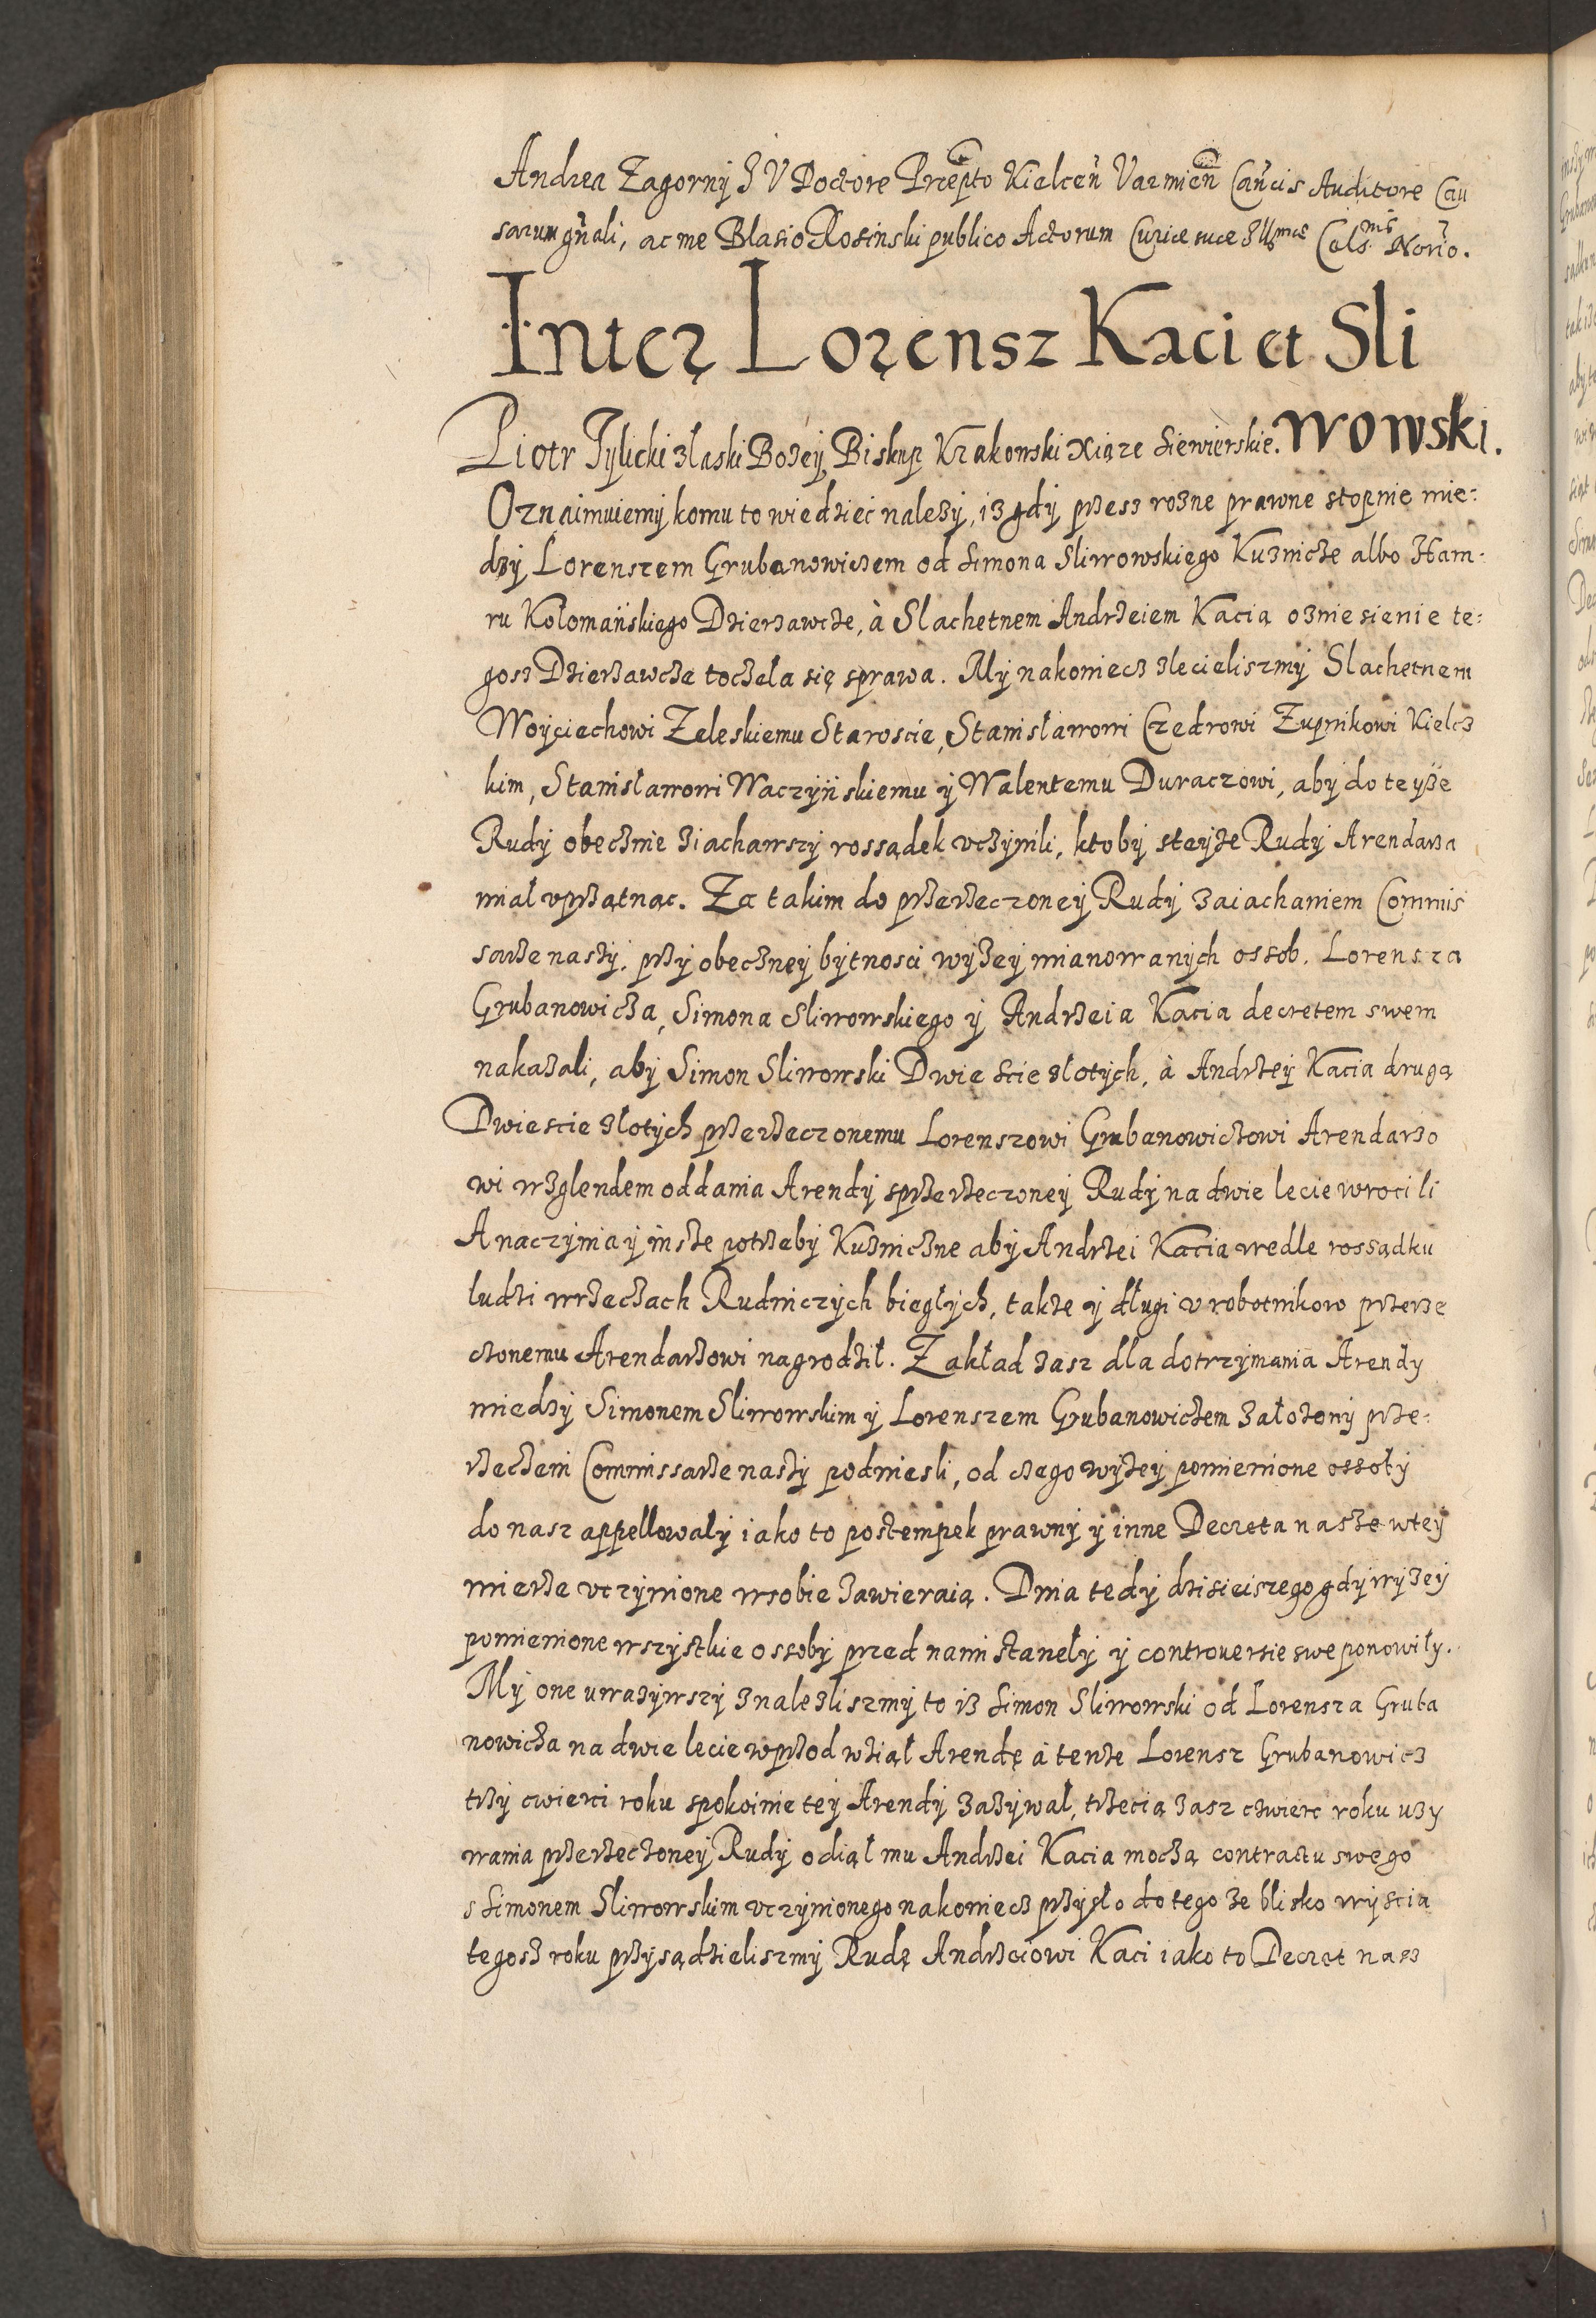 Andrea Zagorny J V Doctore Præpto Kielceñ Varmieñ Cañcis Auditore Cau
sarum gñali, ac me Blasio Rosinski publico Actorum Curiæ suæ Illmæ Celsmę Norio.
Inter Lorensz Kaci et Sli
wowski.
Piotr Tylicki z laski Bozey Biskup Krakowski Xiąze Siewierskie.
Oznaimuiemy komu to wiedziec nalezy, iz gdy przesz rozne prawne stopnie mie-
dzy Lorenszem Grubanowiczem od Simona Sliwowskiego Kuznicze albo Ham-
ru Kołomańskiego Dzierzawcze, à Slachetnem Andrzeiem Kacia o zniesienie te-
gosz Dzierzawcze toczeła się sprawa. My nakoniecz zlecieliszmy Slachetnem
Woyciechowi Zeleskiemu Staroscie, Stanisławowi Czedrowi Zupnikowi Kielcz
kim, Stanisławowi Waczyńskiemu y Walentemu Duraczowi, aby do teyze
Rudy obecznie ziachawszy rossądek vczynili, kto by s teyze Rudy Arendarza
miał vprzątnąc. Za takim do przerzeczoney Rudy zaiachaniem Commis
sarze naszy, przy obeczney bytnosci wyzey mianowanych ossob, Lorensza
Grubanowicza, Simona Sliwowskiego y Andrzeia Kacia decretem swem
nakazali, aby Simon Sliwowski Dwie scie złotych, à Andrzey Kacia drugą
Dwie scie złotych przerzeczonemu Lorenszowi Grubanowiczowi Arendarzo
wi wzglendem oddania Arendy s przerzeczoney Rudy na dwie lecie wrocili
A naczynia y insze potrzeby Kuzniczne aby Andrzei Kacia wedle rossądku
ludzi w rzeczach Rudniczych biegłych, takze y długi v robotnikow przerze
czonemu Arendarzowi nagrodził. Zakład zasz dla dotrzymania Arendy
miedzy Simonem Sliwowskim y Lorenszem Grubanowiczem załozony prze-
rzeczeni Commissarze naszy podniesli, od czego wyzey pomienione ossoby
do nasz appellowały iako to postempek prawny y inne Decreta nasze w tey
mierze vczynione w sobie zawieraią. Dnia tedy dzisieiszego gdy wyzey
pomienione wszystkie ossoby przed nami staneły y controuersie swe ponowiły.
My one uwazywszy znalezliszmy to iz Simon Sliwowski od Lorensza Gruba
nowicza na dwie lecie wprzod wziął Arendę à tenze Lorensz Grubanowicz
trzy cwierci roku spokoinie tey Arendy zazywał, trzecią zasz czwierc roku uzy
wania przerzeczoney Rudy odiął mu Andrzei Kacia moczą contractu swego
s Simonem Sliwowskim vczynionego nakoniecz przyszło do tego ze blisko wyscia
tegosz roku przysądzieliszmy Rudę Andrzeiowi Kaci iako to Decret nasz